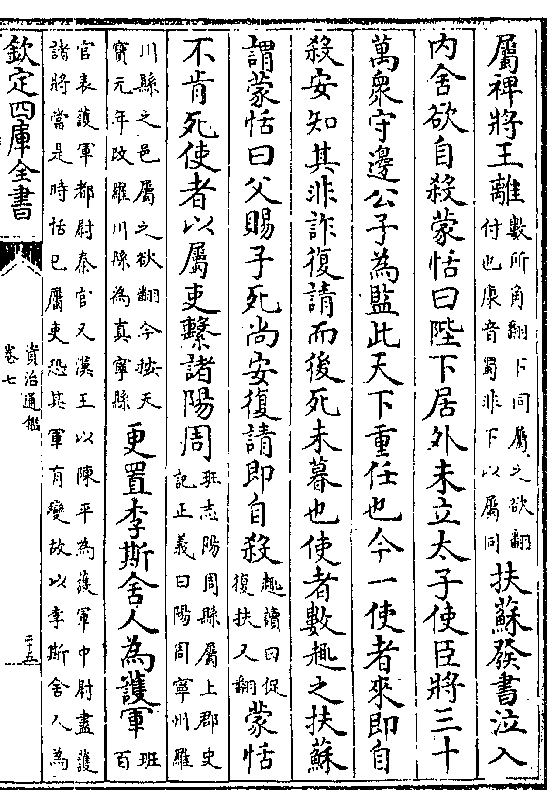 屬裨將王離數所角翻下同屬之欲翻
付也康音蜀非下以屬同扶蘇發書泣入
内舍欲自殺蒙恬曰陛下居外未立太子使臣將三十
萬衆守邊公子為監此天下重任也今一使者來即自
殺安知其非詐復請而後死未暮也使者數趣之扶蘇
謂蒙恬曰父賜子死尚安復請即自殺趣讀曰促
復扶又翻蒙恬
不肯死使者以屬吏繫諸陽周班志陽周縣屬上郡史
記正義曰陽周寧州羅
川縣之邑屬之欲翻今按天
寶元年改羅川縣為真寧縣更置李斯舍人為護軍班
百
官表護軍都尉秦官又漢王以陳平為護軍中尉盡護
諸將當是時恬已屬吏恐其軍有變故以李斯舍人為
欽定四庫全書
資治通鑑
卷七
二十五